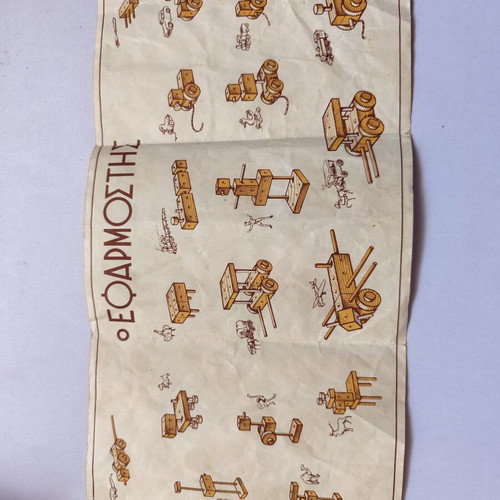 Ο ΕΦΑΡΜΟΣΤΗΣ